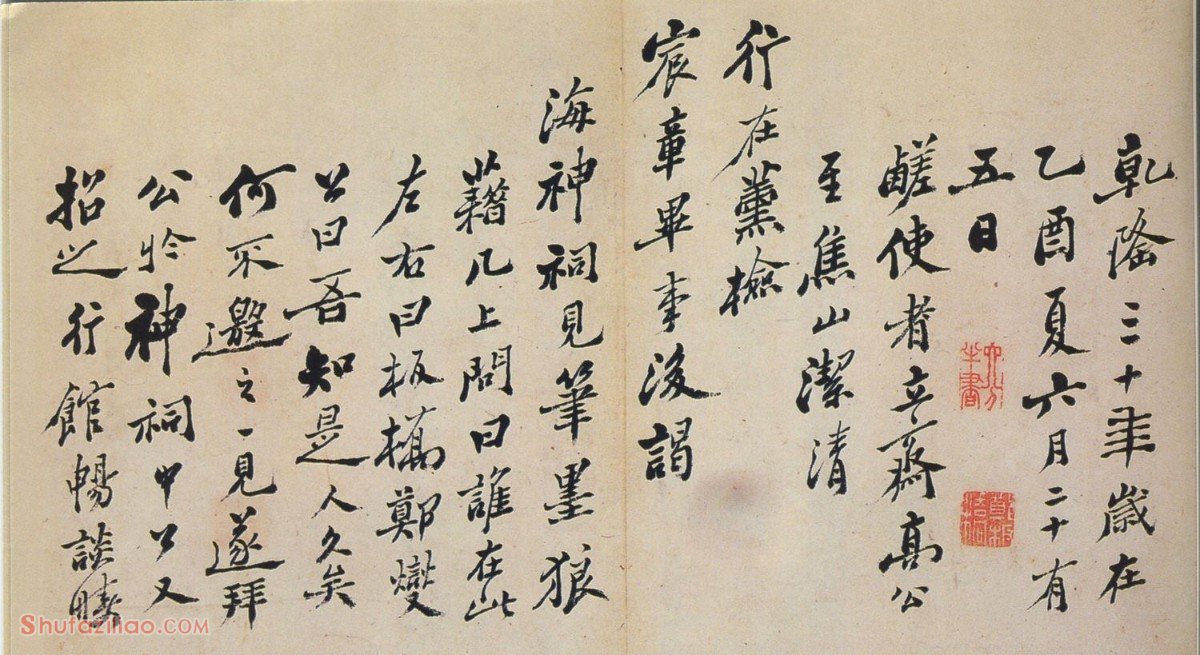 乾隆三十年歲在
乙酉夏六月二十有
五日
鹾使者立齋高公
至焦山潔清
行在薰檢
宸章畢事後謁
海神祠見筆墨狼
藉几上問曰誰在此
左右曰板橋鄭燮
公曰吾知是人久矣
何不邀之一見遂拜
公於神祠中公又
招之行館暢談
六分半書
鄭
Shufaziliao.COM